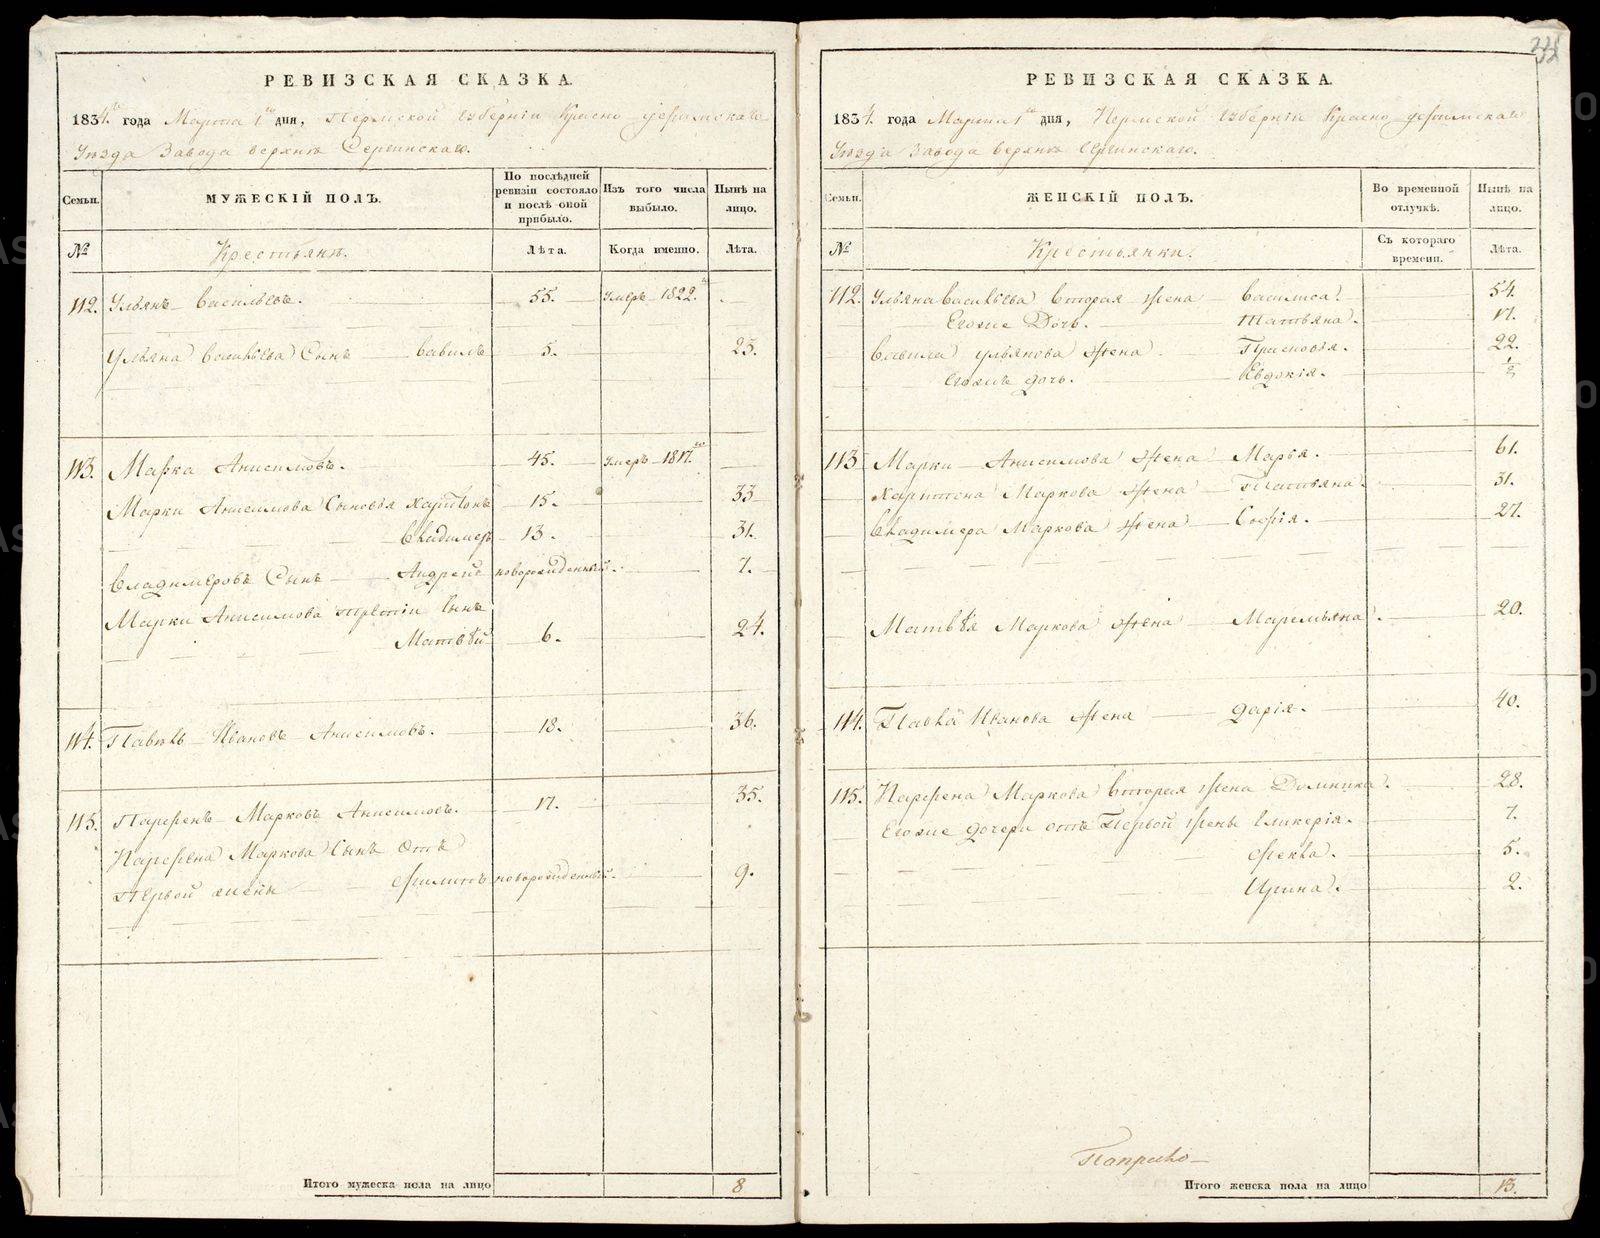 РЕВИЗСКАЯ СКАЗКА.
1834. года Марта 1 дня, Пермской Губерніи Красно уфимскаго
Уезда Завода верхнѣ Сергинскаго.
Семьи.
МУЖЕСКІЙ ПОЛЪ.
По послѣдней ревизіи состояло и послѣ оной прибыло.
Изъ того числа выбыло.
Нынѣ на лицо.
№
Крестьянѣ.
Лѣта.
Когда именно.
Лѣта.
112. Ульянъ Васильевъ. 55. Умеръ 1822.
Ульяна Васильева Сынъ Вавилъ 5. 23.
113. Марка Анисимовъ. 45. Умеръ 1817.
Марки Анисимова Сыновья Харитонъ 15. 33
Владимеръ 13. 31.
Владимеровъ Сынъ Андрей новорожденный. 7.
Марки Анисимова третій Сынъ
Матвѣй 6. 24.
114. Павелъ Ивановъ Анисимовъ. 18. 36.
115. Парфенъ Марковъ Анисимовъ. 17. 35.
Парфена Маркова Сынъ Отъ
Первой жены Филипъ новорожденный. 9.
Итого мужеска пола на лицо 8
РЕВИЗСКАЯ СКАЗКА.
1834. года Марта 1 дня, Пермской Губерніи Красно уфимскаго
Уезда Завода верхнѣ Сергинскаго.
Семьи.
ЖЕНСКІЙ ПОЛЪ.
Во временной отлучкѣ.
Нынѣ на лицо.
№
Крестьянки.
Съ котораго времени.
Лѣта.
112. Ульяна Васильева Вторая жена Василиса. 54.
Егоже Дочь. Татьяна. 17.
Вавила Ульянова жена Прасковья. 22.
Егоже дочь. Евдокія. 1/2
113 Марки Анисимова жена Марья. 61.
Харитона Маркова жена Татьяна. 31.
Владимера Маркова жена Софія. 27.
Матвѣя Маркова жена Маремьяна. 20.
114. Павла Иванова жена Дарія. 40.
115. Парфена Маркова Вторая жена Домника. 28.
Егоже дочери отъ Первой жены Гликерія. 7.
Фекла. 5.
Ирина. 2.
Итого женска пола на лицо 13.